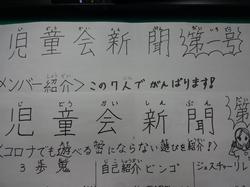 児童会新聞 第一号
メンバー紹介>この7人でがんばります!
児童会新聞
<コロナでも遊べる密にならない遊びを紹介?>
3歩鬼 自己紹介ビンゴ ジェスチャーリレ